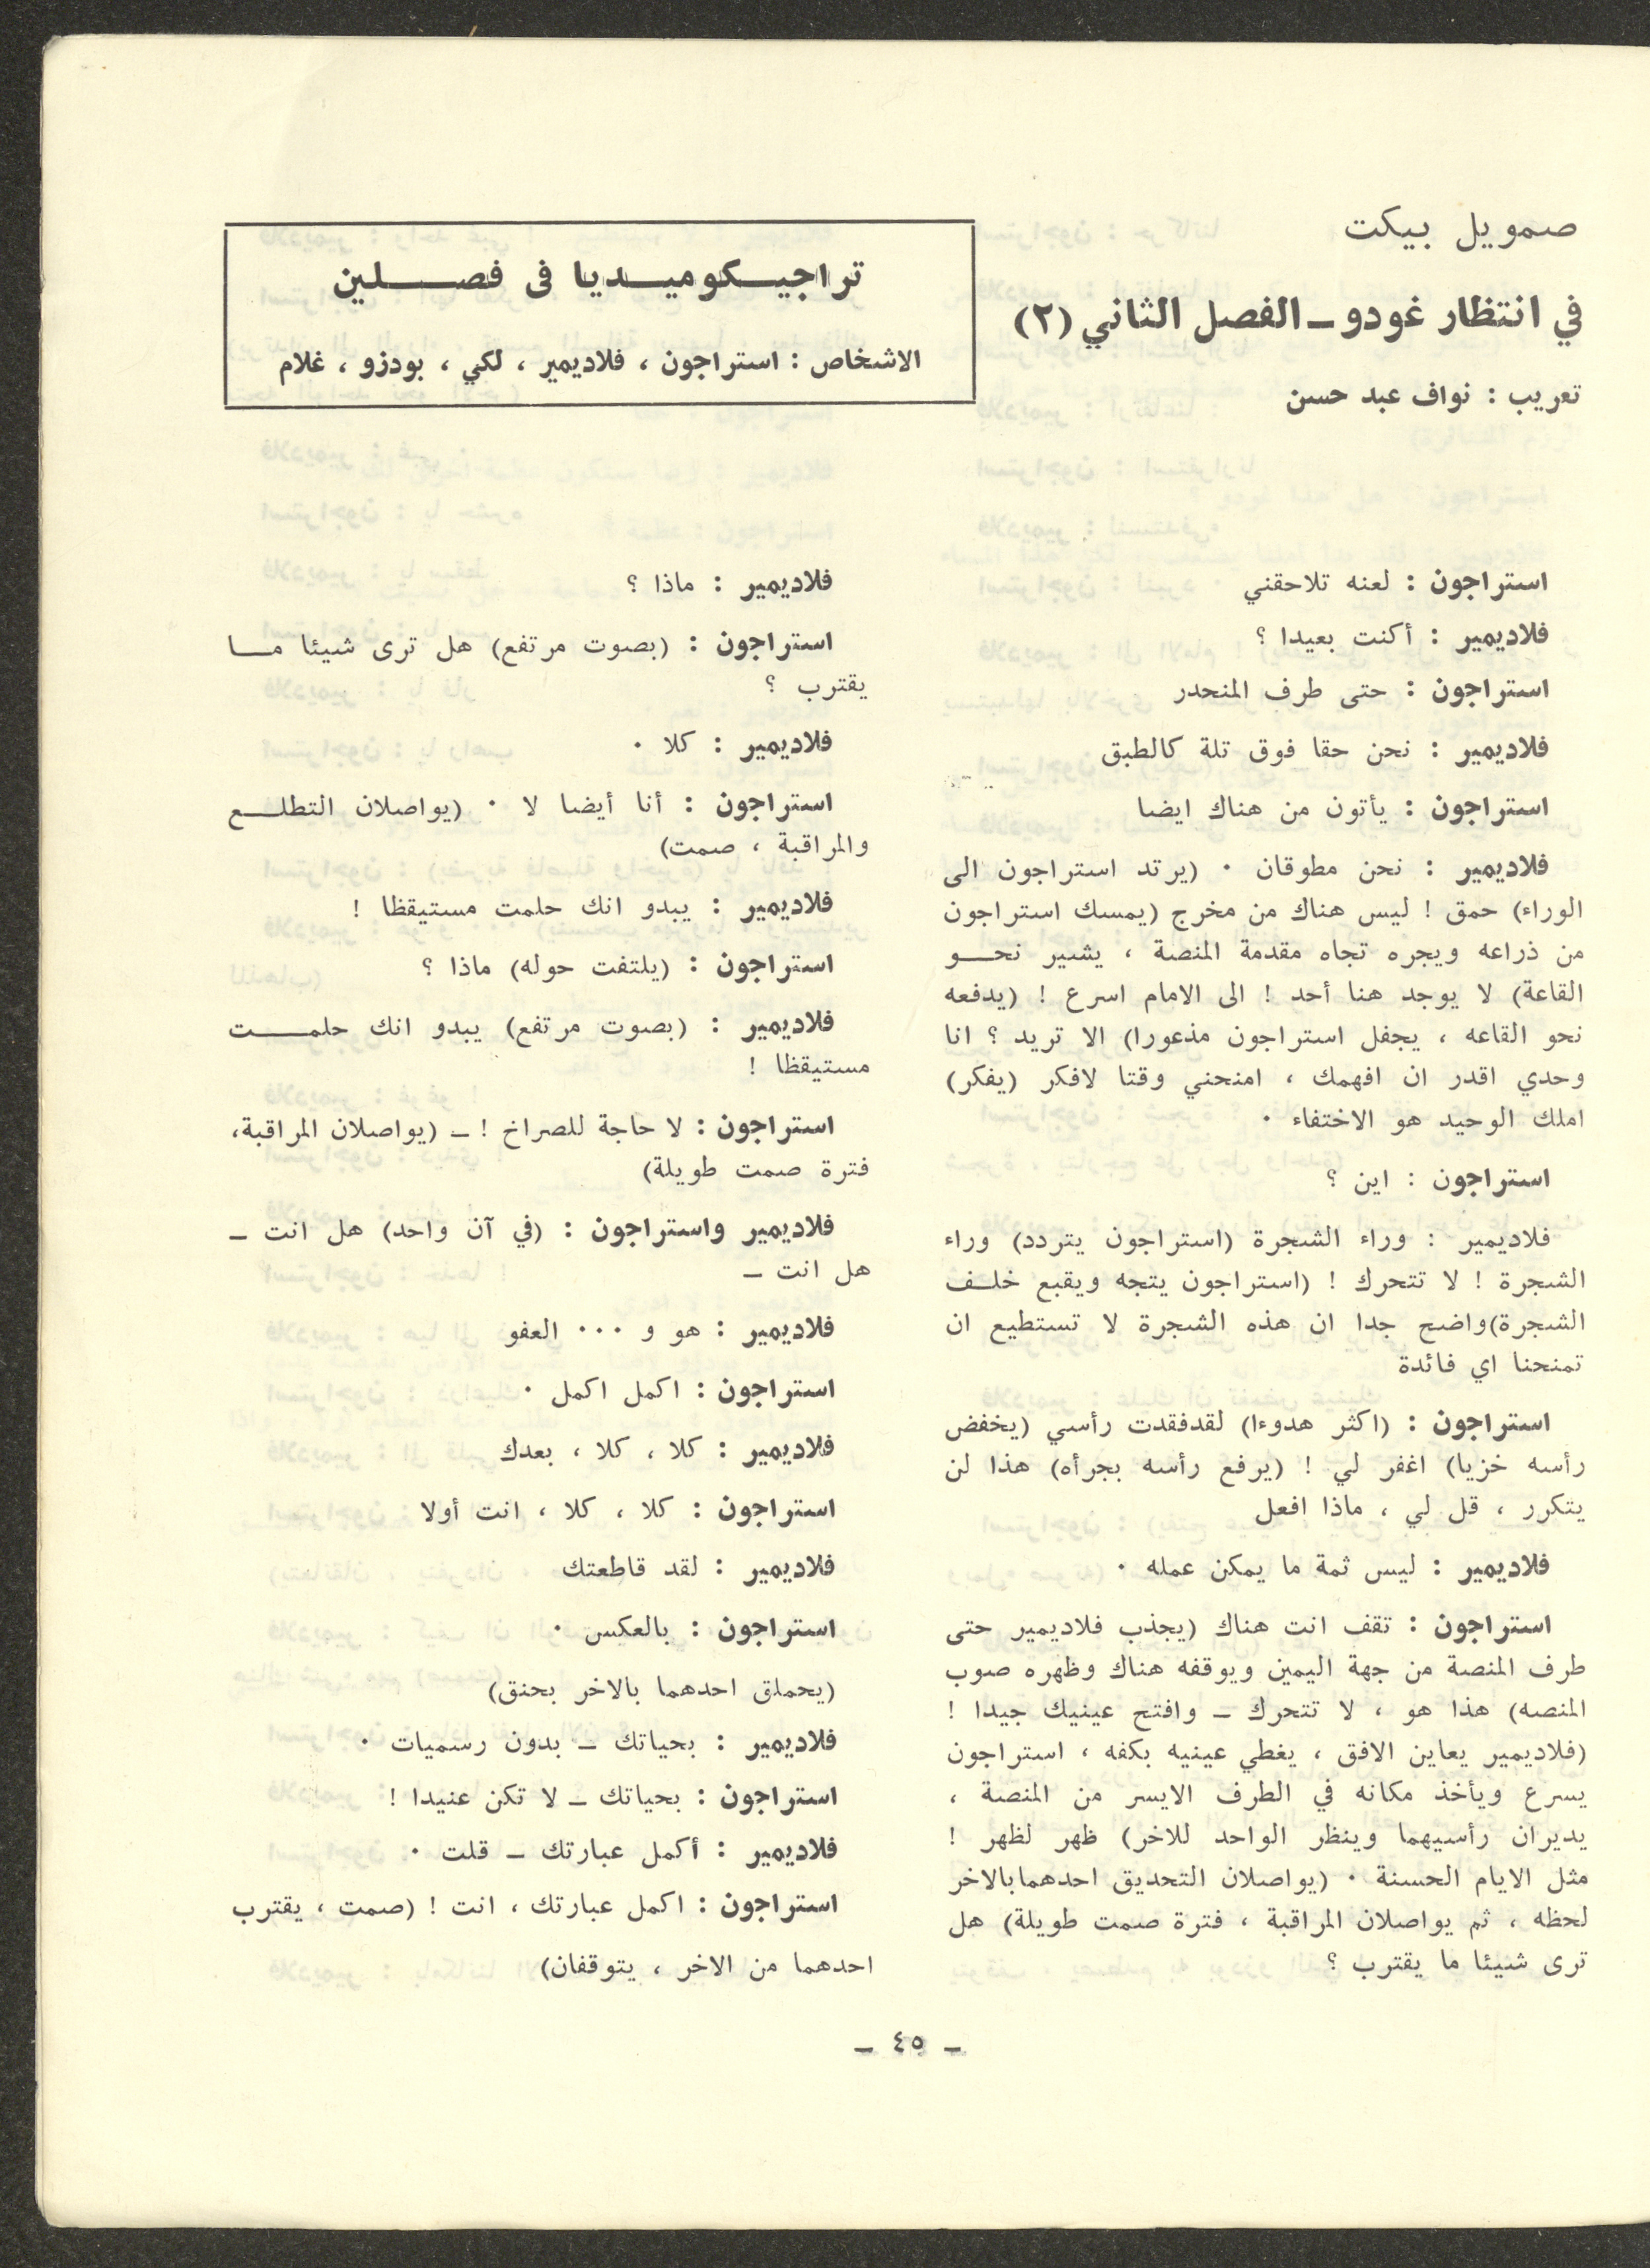 صمويل بيكت
في انتظار غودو ـ الفصل الثاني (٢)
تعريب : نواف عبد حسن
تراجيـكوميـديا فى فصـلين
الاشخاص : استراجون ، فلاديمير ، لكي ، بودزو ، غلام
استراجون : لعنه تلاحقني
فلاديمير : أكنت بعيدا ؟
استراجون : حتى طرف المنحدر
فلاديمير : نحن حقا فوق تلة كالطبق
استراجون : يأتون من هناك ايضا
فلاديمير : نحن مطوقان ٠ (يرتد استراجون الى
الوراء) حمق ! ليس هناك من مخرج (يمسك استراجون
من ذراعه ويجره تجاه مقدمة المنصة ، يشير نحـو
القاعة) لا يوجد هنا أحد ! الى الامام اسرع ! (يدفعه
نحو القاعه ، يجفل استراجون مذعورا) الا تريد ؟ انا
وحدي اقدر ان افهمك ، امنحني وقتا لافكر (يفكر)
املك الوحيد هو الاختفاء ٠
استراجون : اين ؟
فلاديمير : وراء الشجرة (استراجون يتردد) وراء
الشجرة ! لا تتحرك ! (استراجون يتجه ويقبع خلـف
الشجرة)واضح جدا ان هذه الشجرة لا تستطيع ان
تمنحنا اي فائدة
استراجون : (اكثر هدوءا) لقدفقدت رأسي (يخفض
رأسه خزيا) اغفر لي ! (يرفع رأسه بجرأه) هذا لن
يتكرر ، قل لي ، ماذا افعل
فلاديمير : ليس ثمة ما يمكن عمله ٠
استراجون : تقف انت هناك (يجذب فلاديمير حتى
طرف المنصة من جهة اليمين ويوقفه هناك وظهره صوب
المنصه) هذا هو ، لا تتحرك ـ وافتح عينيك جيدا !
(فلاديمير يعاين الافق ، يغطي عينيه بكفه ، استراجون
يسرع ويأخذ مكانه في الطرف الايسر من المنصة ،
يديران رأسيهما وينظر الواحد للاخر) ظهر لظهر !
مثل الايام الحسنة ٠ (يواصلان التحديق احدهمابالاخر
لحظه ، ثم يواصلان المراقبة ، فترة صمت طويلة) هل
ترى شيئا ما يقترب ؟
فلاديمير : ماذا ؟
استراجون : (بصوت مرتفع) هل ترى شيئا مـا
يقترب ؟
فلاديمير : كلا ٠
استراجون : أنا أيضا لا ٠ (يواصلان التطلـع
والمراقبة ، صمت)
فلاديمير : يبدو انك حلمت مستيقظا !
استراجون : (يلتفت حوله) ماذا ؟
فلاديمير : (بصوت مرتفع) يبدو انك حلمـت
مستيقظا !
استراجون : لا حاجة للصراخ ! ـ (يواصلان المراقبة،
فترة صمت طويلة)
فلاديمير واستراجون : (في آن واحد) هل انت ـ
هل انت ـ
فلاديمير : هو و ٠٠٠ العفو
استراجون : اكمل اكمل ٠
فلاديمير : كلا ، كلا ، بعدك
استراجون : كلا ، كلا ، انت أولا
فلاديمير : لقد قاطعتك
استراجون : بالعكس ٠
(يحملق احدهما بالاخر بحنق)
فلاديمير : بحياتك ـ بدون رسميات ٠
استراجون : بحياتك ـ لا تكن عنيدا !
فلاديمير : أكمل عبارتك ـ قلت ٠
استراجون : اكمل عبارتك ، انت ! (صمت ، يقترب
احدهما من الاخر ، يتوقفان)
ـ ٤٥ ـ